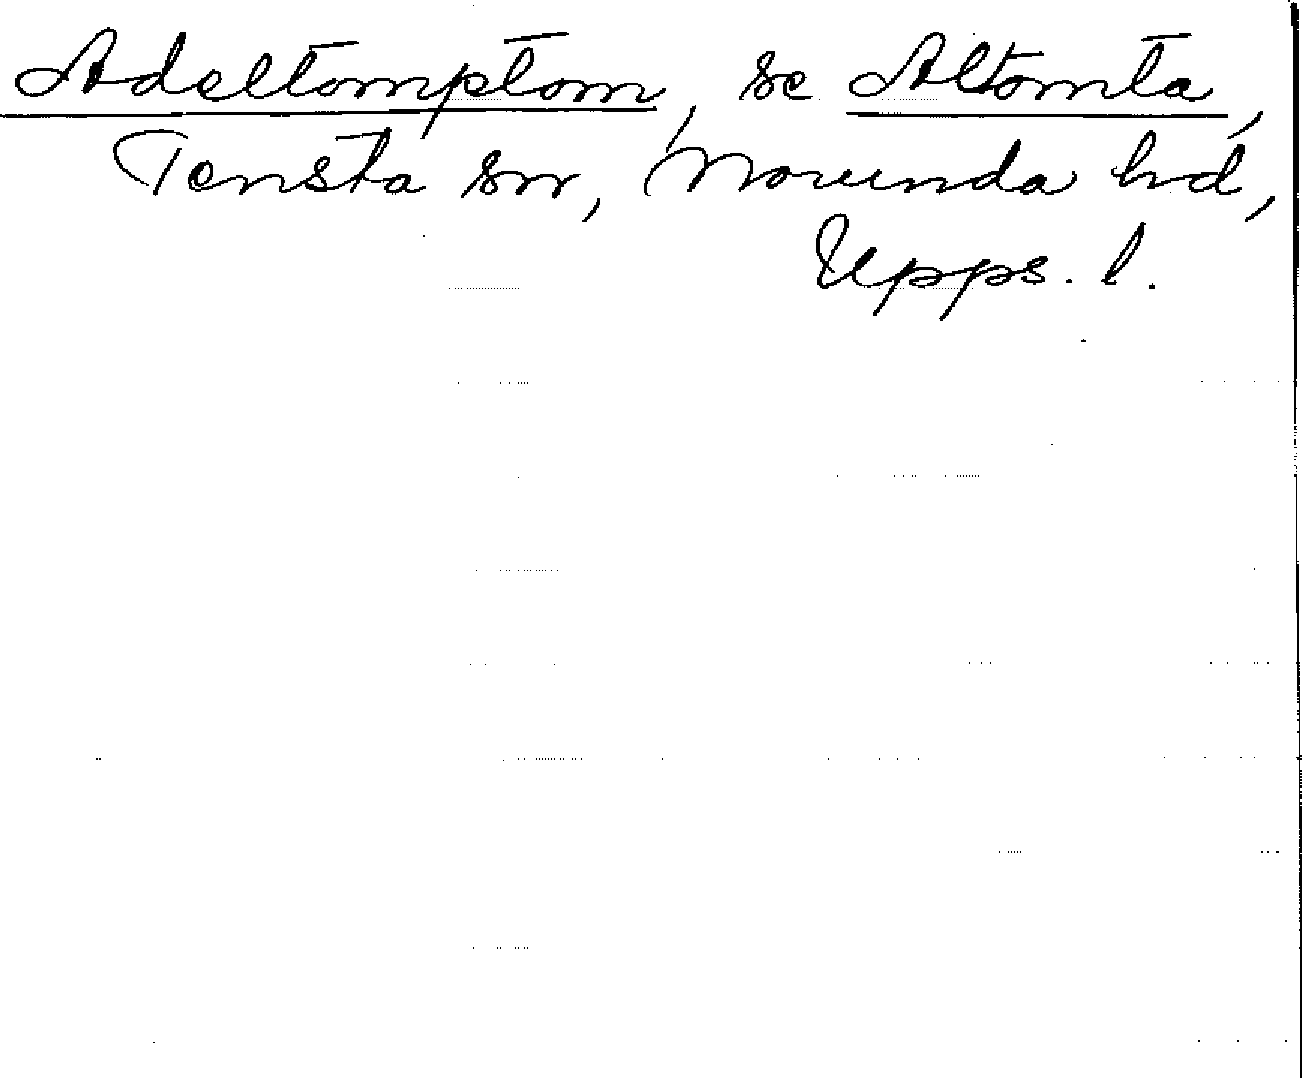 Adeltomptom, se Altomta,
Tensta sn, Norunda hd,
Upps. l.